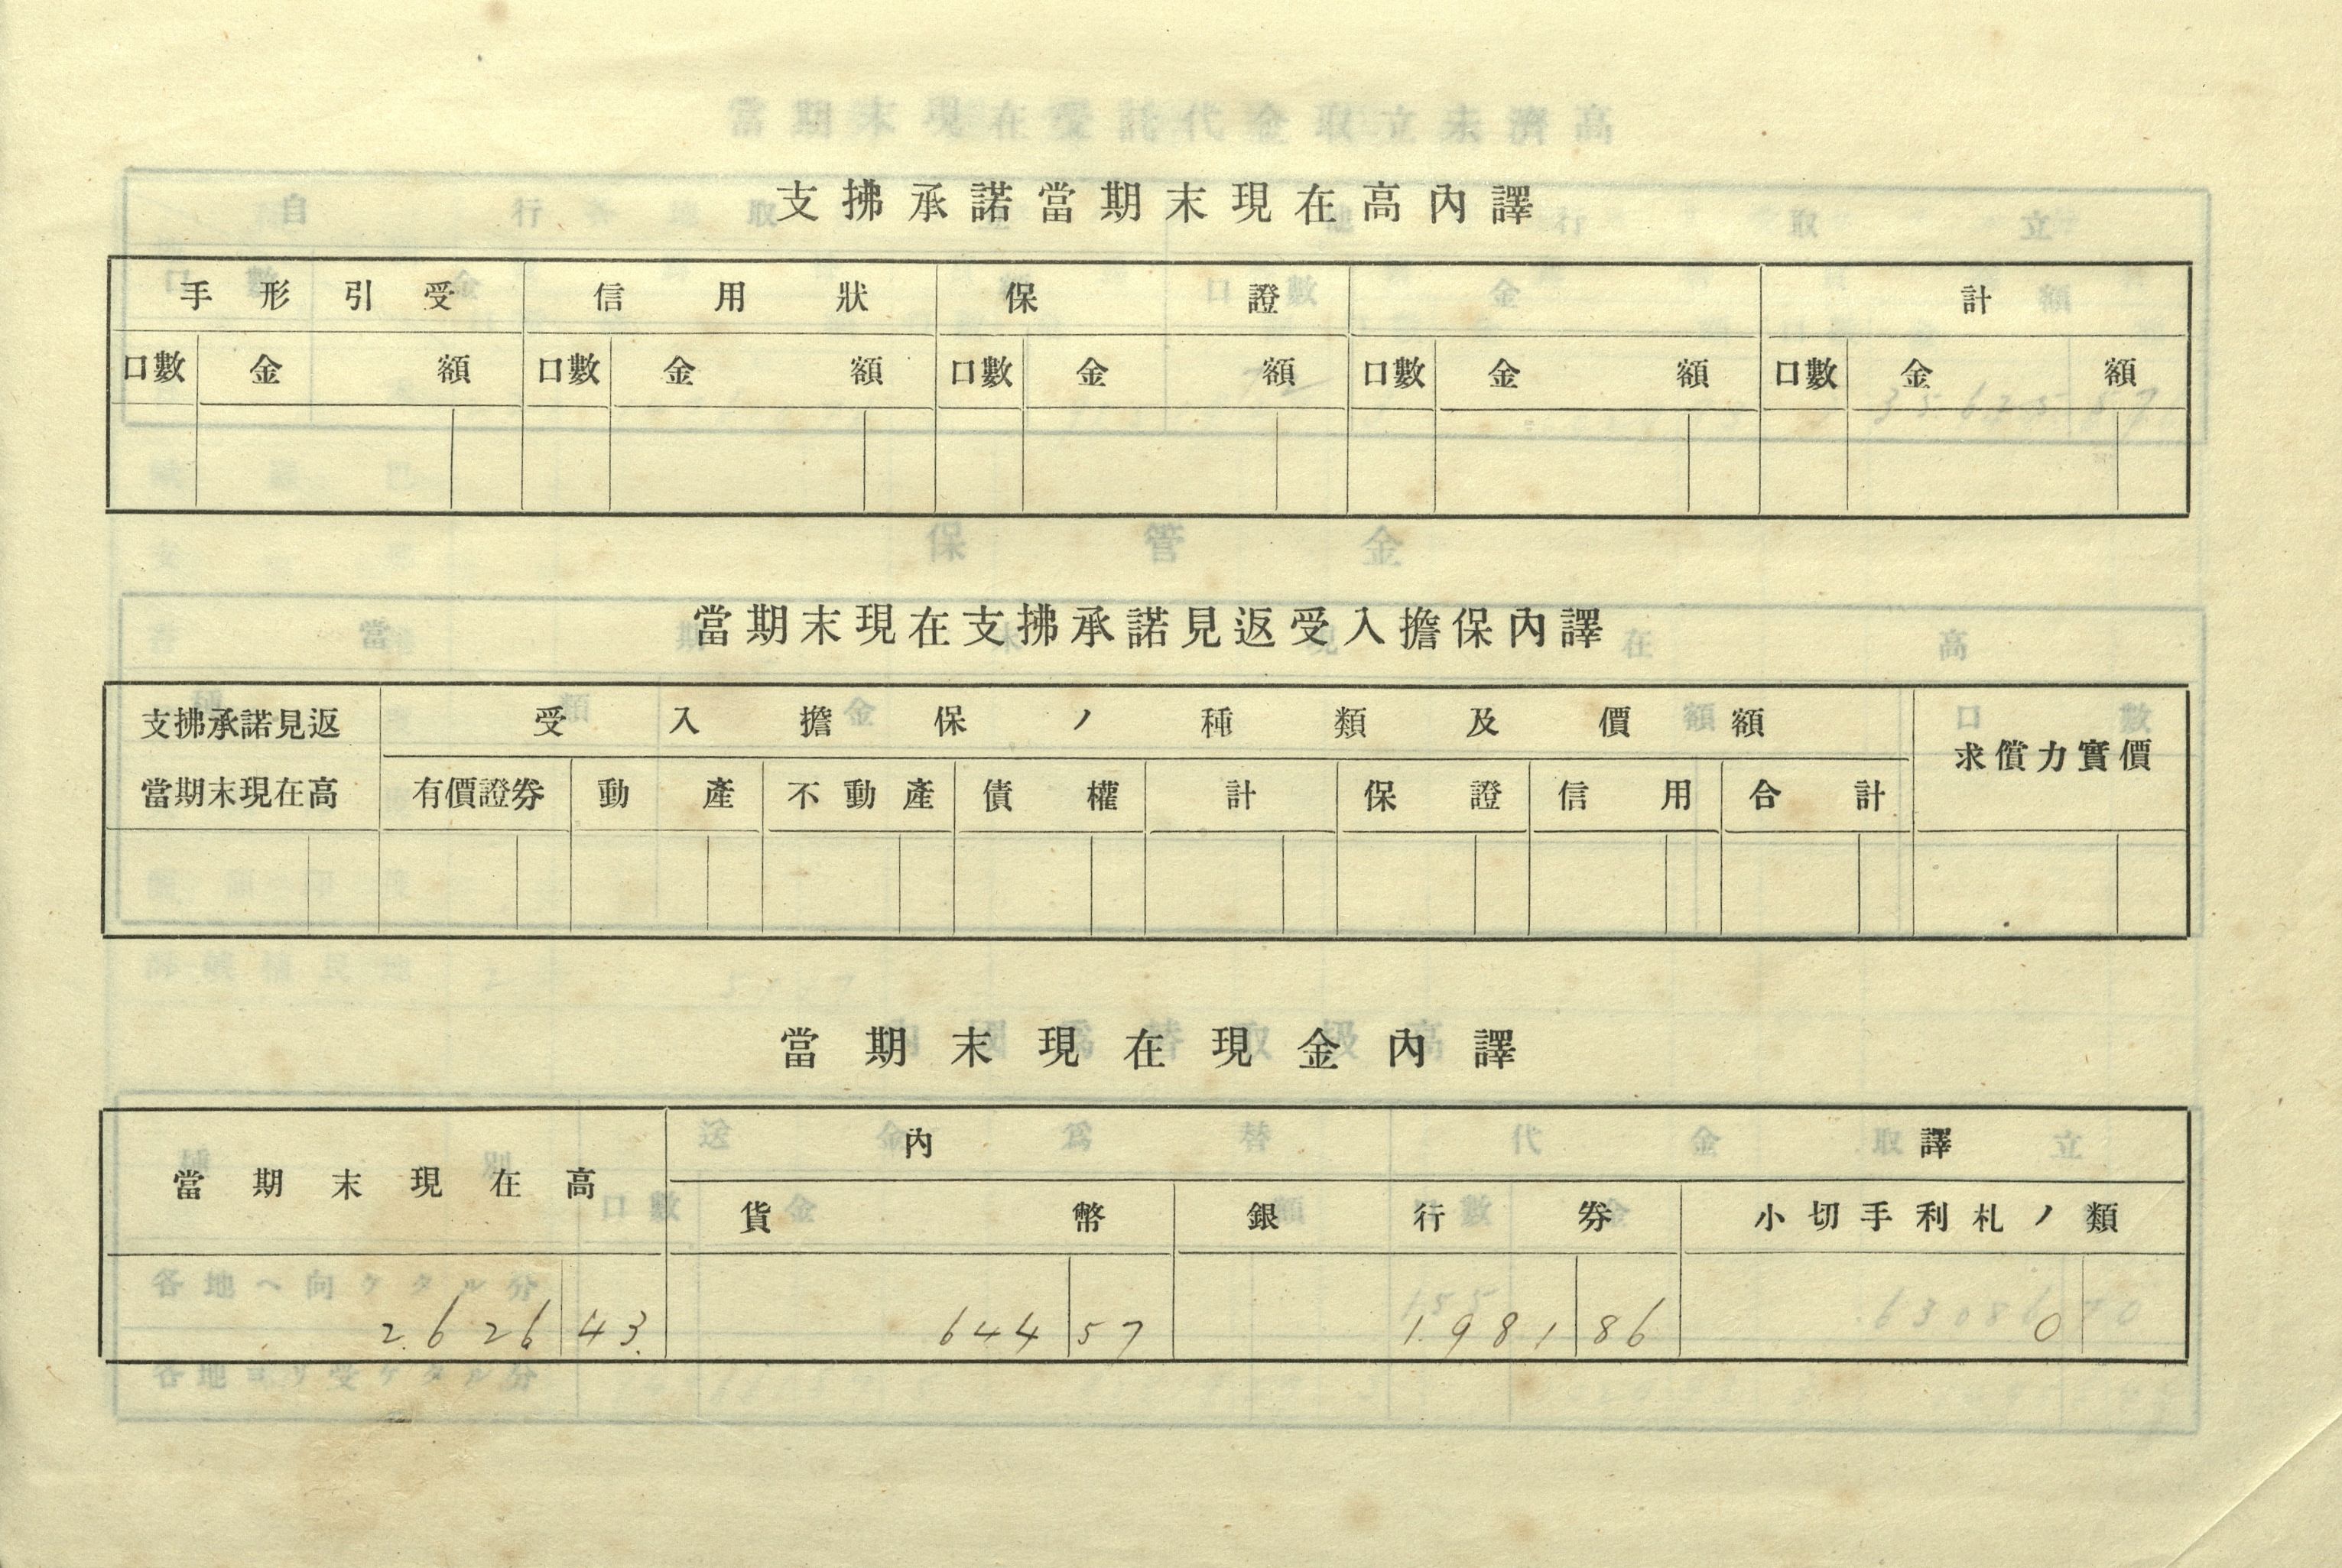 支拂承諾當期末現在高內譯
手形引受 信用狀 保證 計
口數 金額 口數 金額 口數 金額 口數 金額 口數 金額
當期末現在支拂承諾見返受入擔保內譯
支拂承諾見返 受入擔保ノ種類及價額 求償力實價
當期末現在高 有價證券 動產 不動產 債權 計 保證 信用 合計
當期末現在現金內譯
當期末現在高 內譯
貨幣 銀行券 小切手利札ノ類
2.626 43. 644 57 1.981 86 0